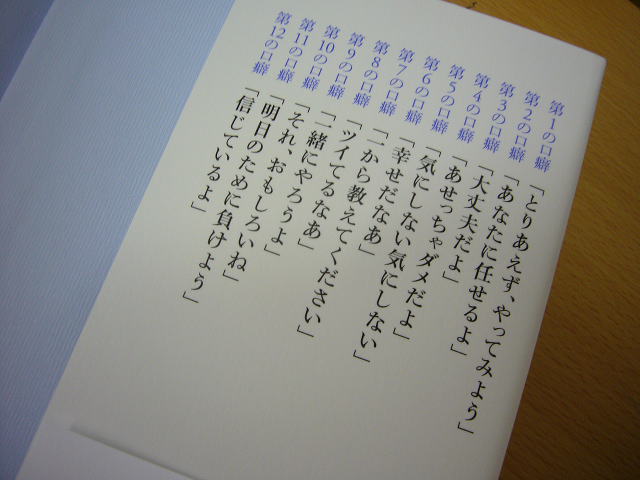 第1の口癖「とりあえず、やってみよう」
第2の口癖「あなたに任せるよ」
第3の口癖「大丈夫だよ」
第4の口癖「あせっちゃダメだよ」
第5の口癖「気にしない気にしない」
第6の口癖「幸せだなあ」
第7の口癖「一から教えてください」
第8の口癖「ツイてるなあ」
第9の口癖「一緒にやろうよ」
第10の口癖「それ、おもしろいね」
第11の口癖「明日のために負けよう」
第12の口癖「信じているよ」